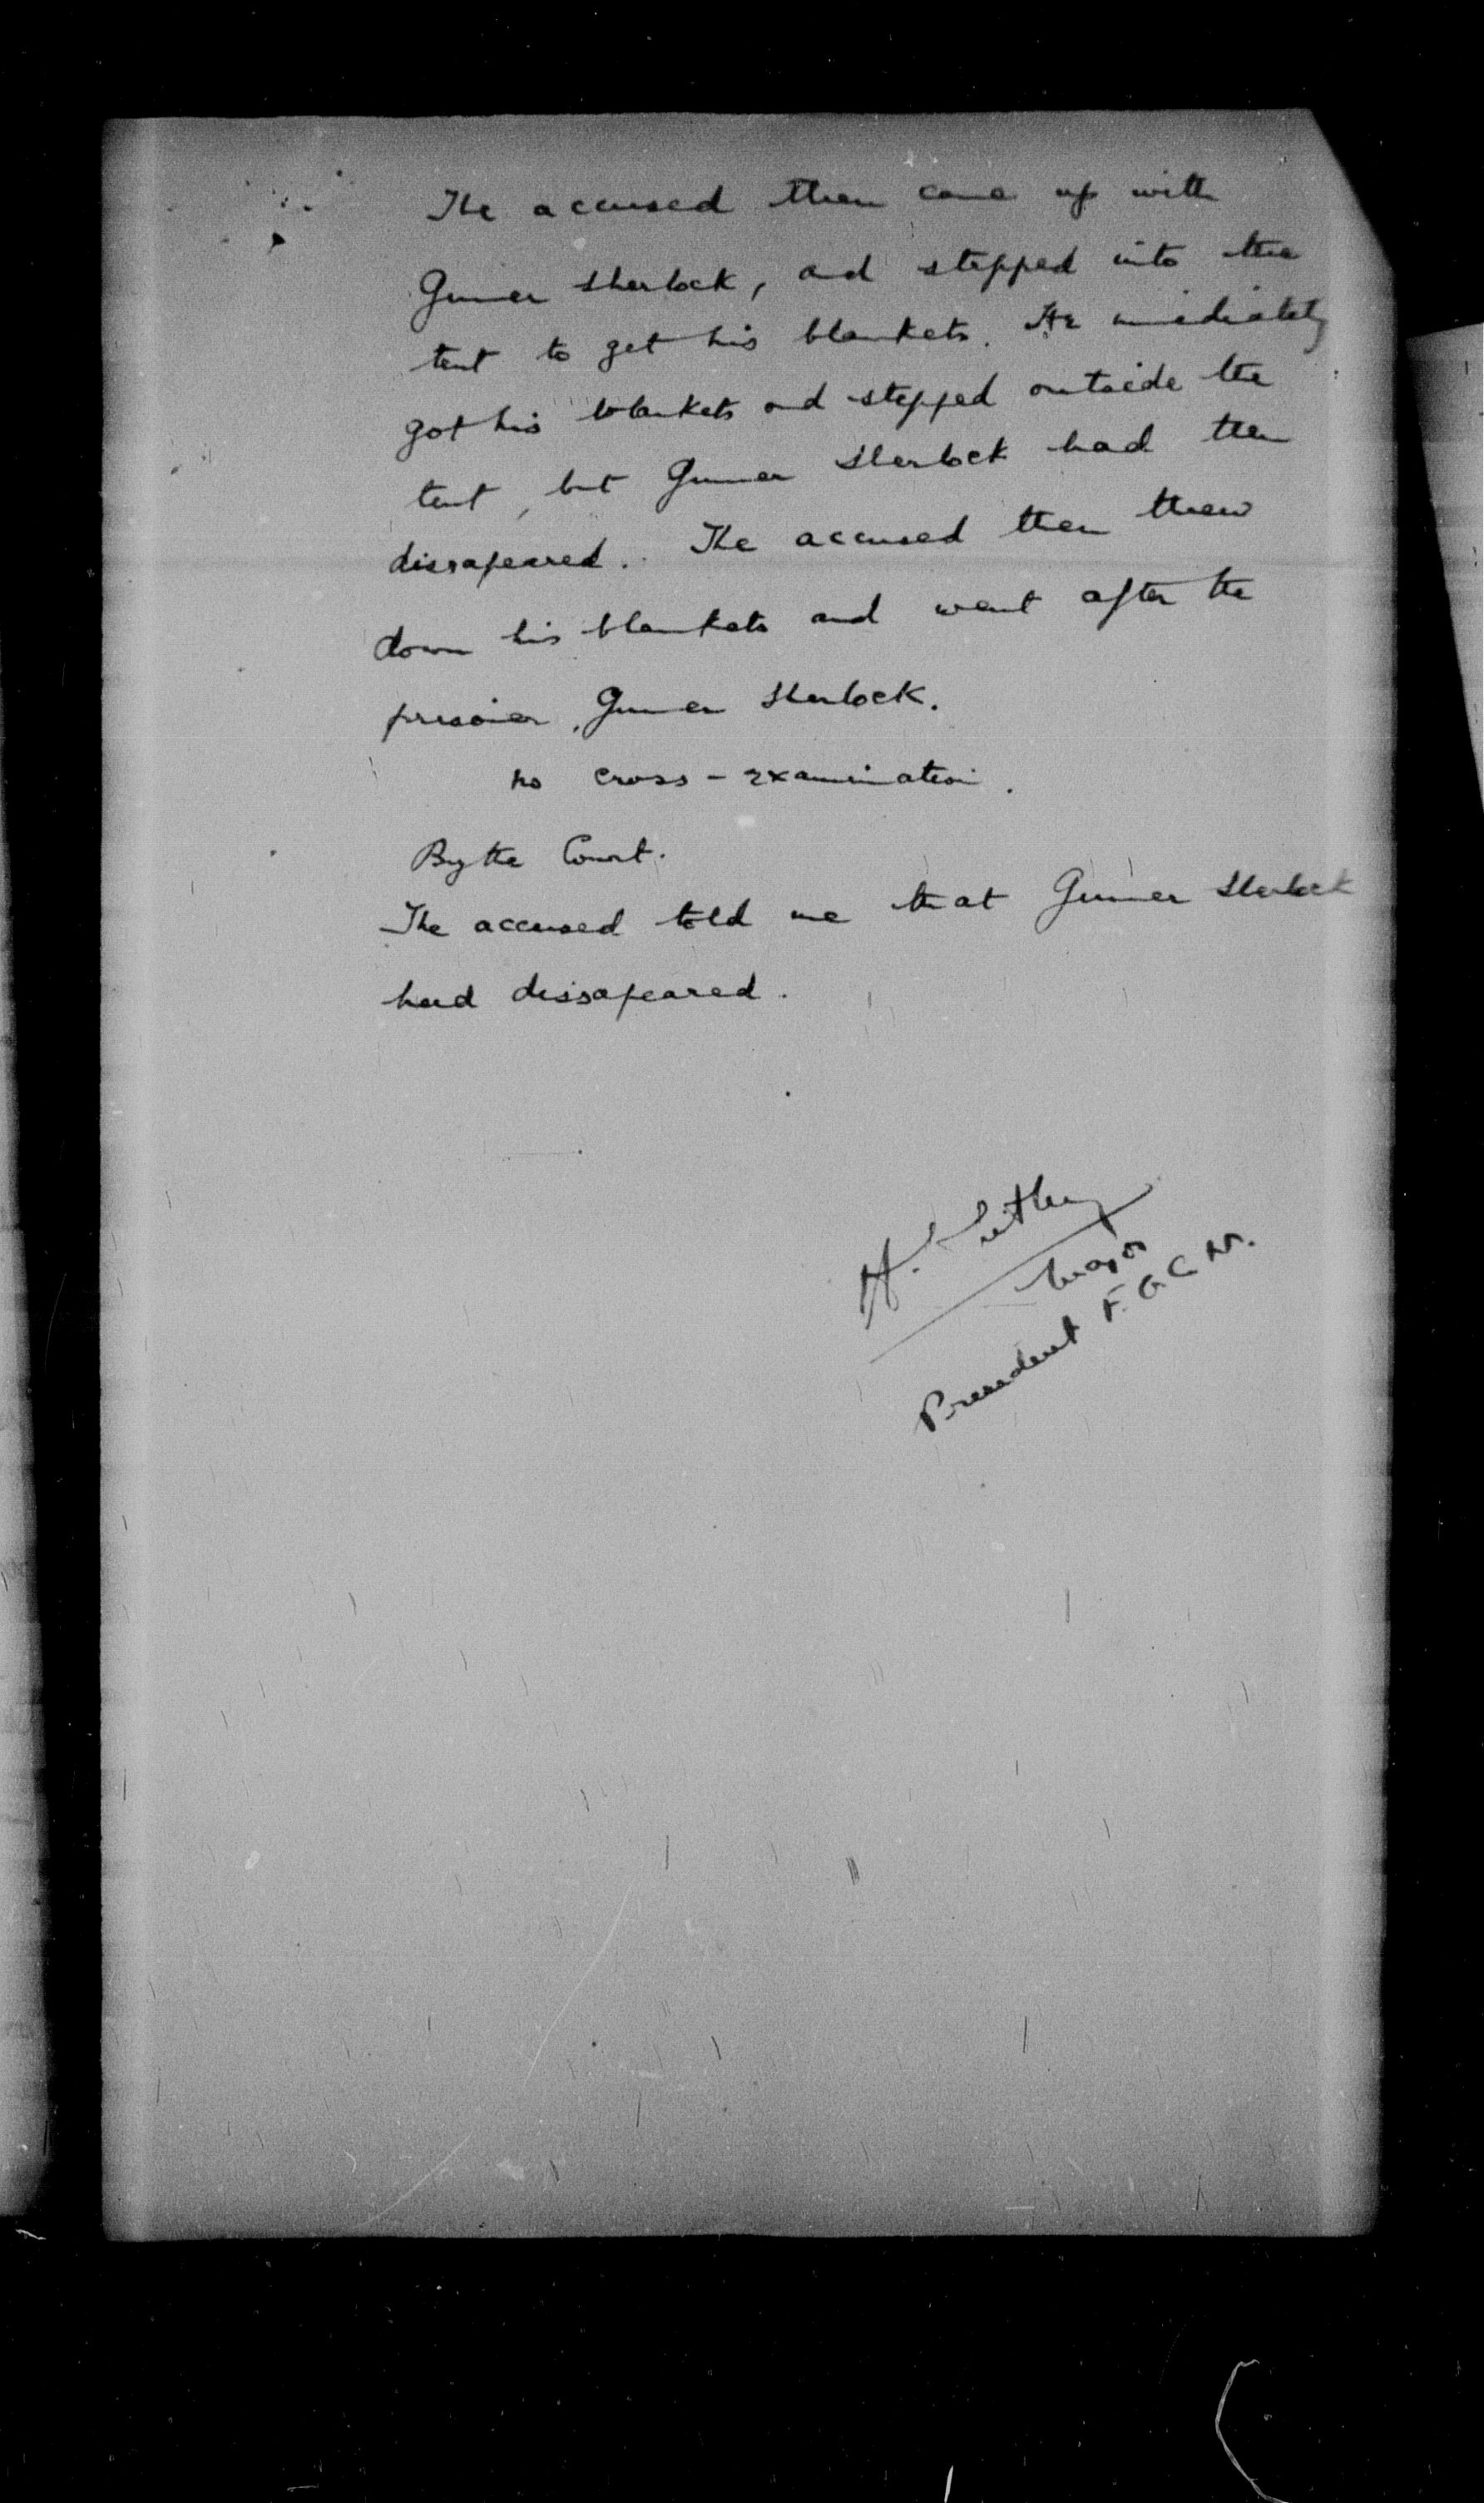 The accused then came up with
Gunner Sherlock, and stepped into the
tent to get his blankets. He immediately
got his blankets and stepped outside the
tent, but Gunner Sherlock had then
dissapeared. The accused then threw
down his blankets and went after the
prisoner, Gunner Sherlock.
No cross-examination.
By the Court.
The accused told me that Gunner Sherlock
had dissapeared.
H.
Major
President F.G.C.M.